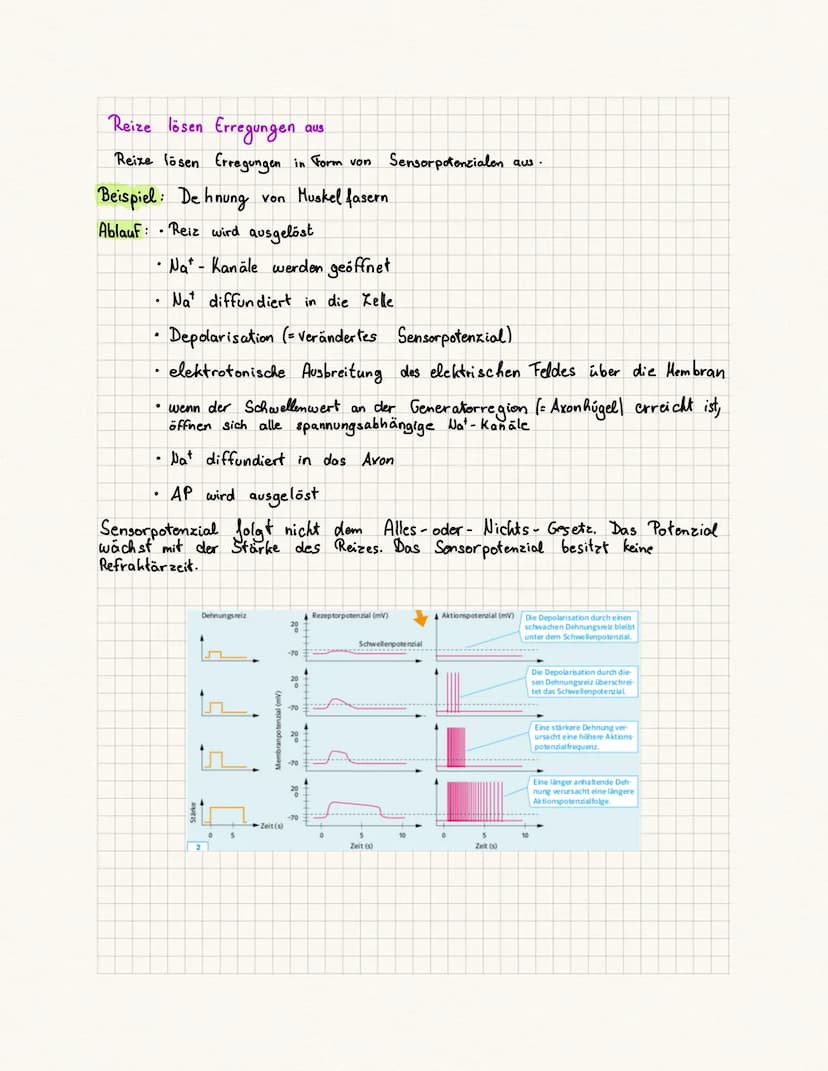 Reize lösen Erregungen aus
Reize lösen Erregungen in Form von Sensorpotenzialen aus.
Beispiel: Dehnung von Muskelfasern
Ablauf: • Reiz wird ausgelöst
• Na⁺ - Kanäle werden geöffnet
• Na⁺ diffundiert in die Zelle
• Depolarisation (= verändertes Sensorpotenzial)
• elektrotonische Ausbreitung des elektrischen Feldes über die Membran
• wenn der Schwellenwert an der Generatorregion (= Axonhügel) erreicht ist,
öffnen sich alle spannungsabhängige Na⁺-Kanäle
• Na⁺ diffundiert in das Axon
• AP wird ausgelöst
Sensorpotenzial folgt nicht dem Alles-oder-Nichts-Gesetz. Das Potenzial
wächst mit der Stärke des Reizes. Das Sensorpotenzial besitzt keine
Refraktärzeit.
Dehnungsreiz
Rezeptorpotenzial (mV)
Aktionspotenzial (mV)
Schwellenpotenzial
20
0
-70
Die Depolarisation durch einen
schwachen Dehnungsreiz bleibt
unter dem Schwellenpotenzial.
20
0
-70
Die Depolarisation durch die-
sen Dehnungsreiz überschrei-
tet das Schwellenpotenzial.
Membranpotenzial (mV)
20
0
-70
Eine stärkere Dehnung ver-
ursacht eine höhere Aktions-
potenzialfrequenz.
20
0
-70
Eine länger anhaltende Deh-
nung verursacht eine längere
Aktionspotenzialfolge.
Stärke
0 5
Zeit (s)
0 5 10
Zeit (s)
0 5 10
Zeit (s)
2